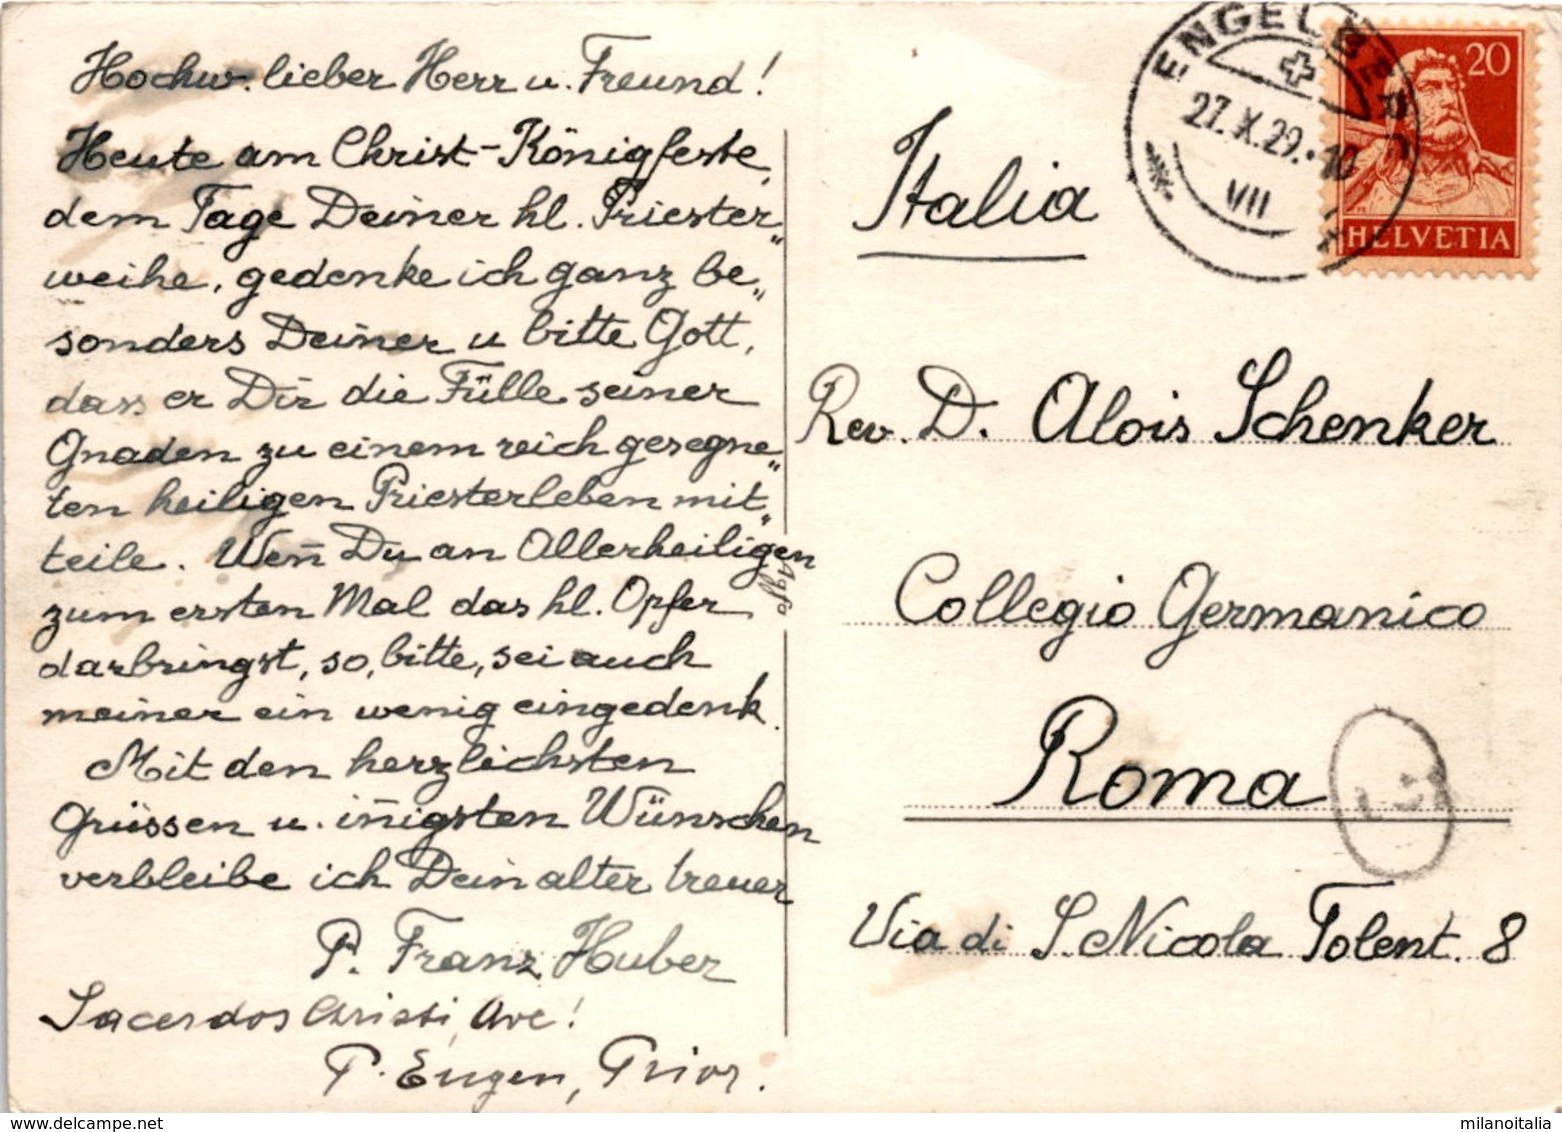 Hochw. lieber Herr u. Freund!
Heute am Christ-Königfeste,
dem Tage Deiner hl. Priester„
weihe, gedenke ich ganz be„
sonders Deiner u bitte Gott,
dass er Dir die Fülle seiner
Gnaden zu einem reich gesegne„
ten heiligen Priesterleben mit„
teile. Wen̄ Du an Allerheiligen
zum ersten Mal das hl. Opfer
darbringst, so, bitte, sei auch
meiner ein wenig eingedenk.
Mit den herzlichsten
Grüssen u. in̄igsten Wünschen
verbleibe ich Dein alter treuer
P. Franz Huber
Sacerdos Christi, Ave!
P. Eugen, Prior.
Agfa
ENGELBERG
27.X.29.-10
VII
20
HELVETIA
Italia
Rev. D. Alois Schenker
Collegio Germanico
Roma
Via di S. Nicola Tolent. 8
www.delcampe.net
milanoitalia